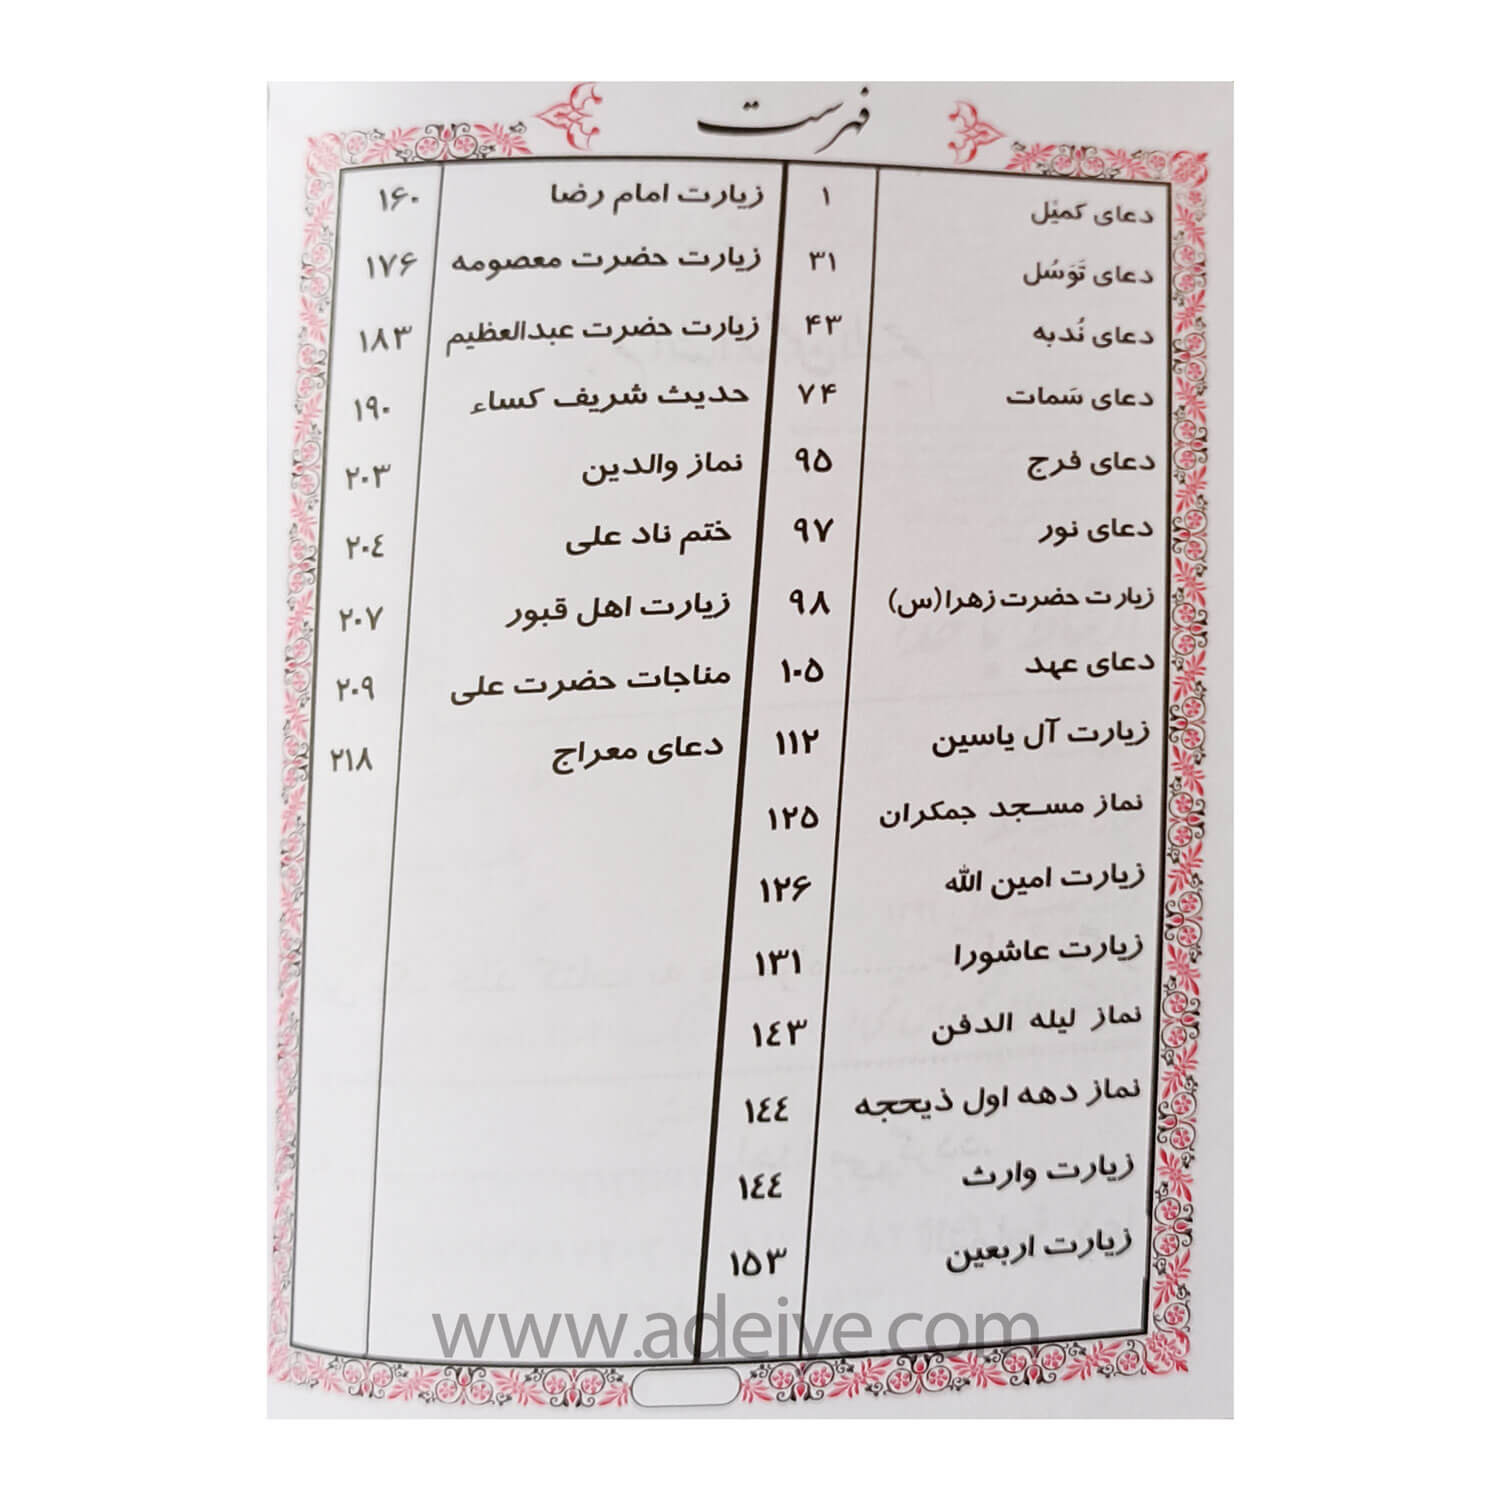 فهرست
دعای کمیل ۱
دعای تَوَسُل ۳۱
دعای نُدبه ۴۳
دعای سَمات ۷۴
دعای فرج ۹۵
دعای نور ۹۷
زیارت حضرت زهرا(س) ۹۸
دعای عهد ۱۰۵
زیارت آل یاسین ۱۱۲
نماز مسجد جمکران ۱۲۵
زیارت امین الله ۱۲۶
زیارت عاشورا ۱۳۱
نماز لیله الدفن ۱٤۳
نماز دهه اول ذیحجه ۱٤٤
زیارت وارث ۱٤٤
زیارت اربعین ۱۵۳
زیارت امام رضا ۱۶۰
زیارت حضرت معصومه ۱۷۶
زیارت حضرت عبدالعظیم ۱۸۳
حدیث شریف کساء ۱۹۰
نماز والدین ۲۰۳
ختم ناد علی ۲۰٤
زیارت اهل قبور ۲۰۷
مناجات حضرت علی ۲۰۹
دعای معراج ۲۱۸
www.adeive.com